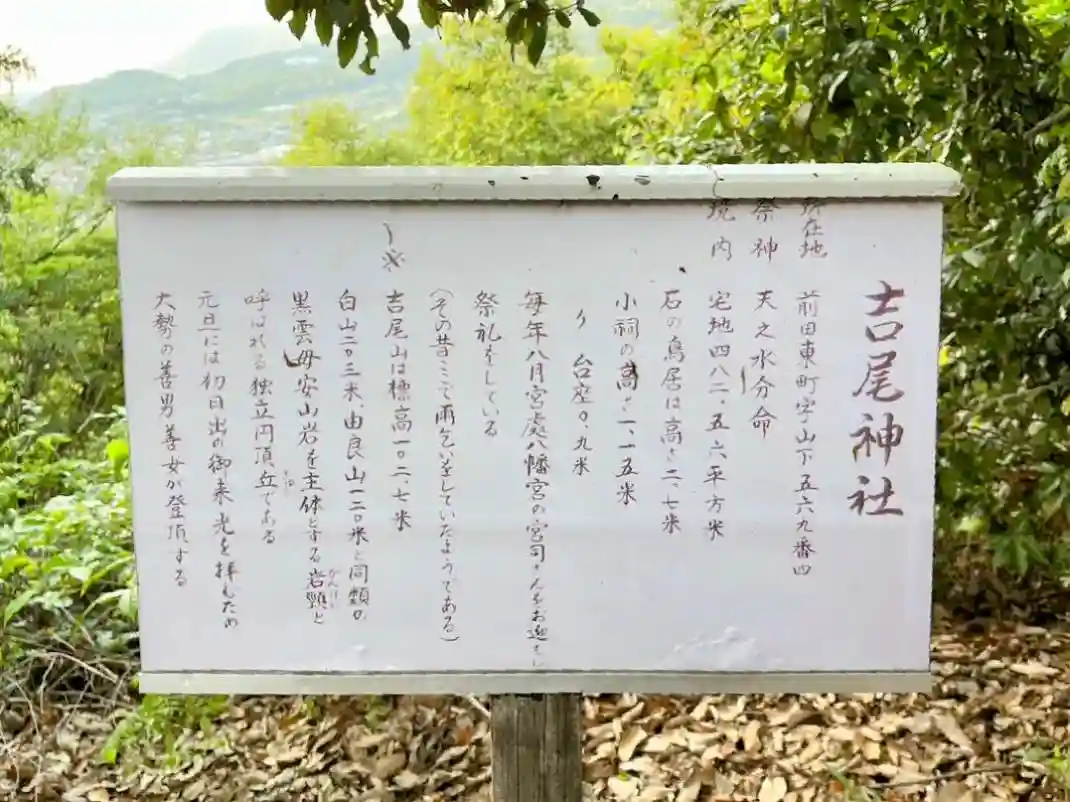 吉尾神社
所在地 前田東町字山下五六九番四
祭神 天之水分命
境内 宅地四八二.五六平方米
石の鳥居は高さ二、七米
小祠の高さ一、一五米
〃 台座〇、九米
毎年八月宮處八幡宮の宮司さんをお迎えし
祭礼をしている
(その昔ここで雨乞いをしていたようである)
※
吉尾山は標高一〇二、七米
白山二〇三米、由良山一二〇米と同類の
黒雲母安山岩を主体とする岩頸と
がんけい
呼ばれる独立円頂丘である
元旦には初日出の御来光を拝むため
大勢の善男善女が登頂する